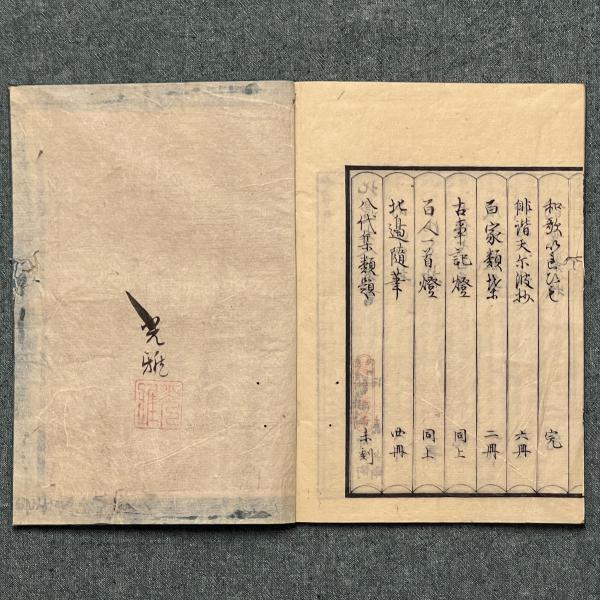 和歌いろひも 完
俳諧天尓波抄 六冊
百家類葉 二冊
古事記燈 同上
百人一首燈 同上
北邊隨筆 四冊
八代集類題 未刻
光雅